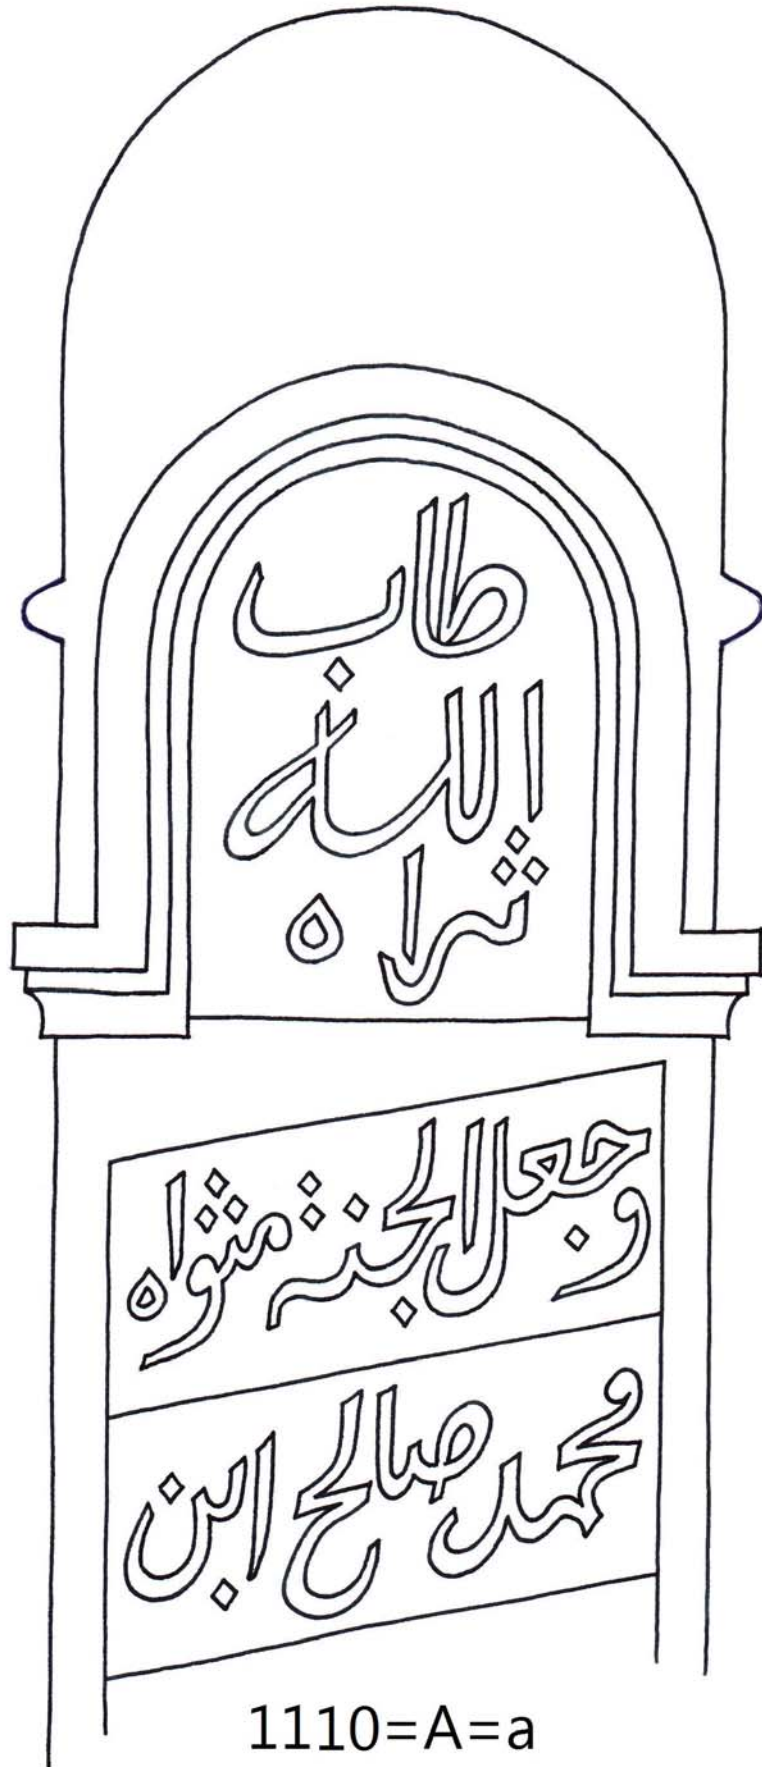 طاب
الله
ثراه
وجعل الجنة مثواه
محمد صالح ابن
1110=A=a